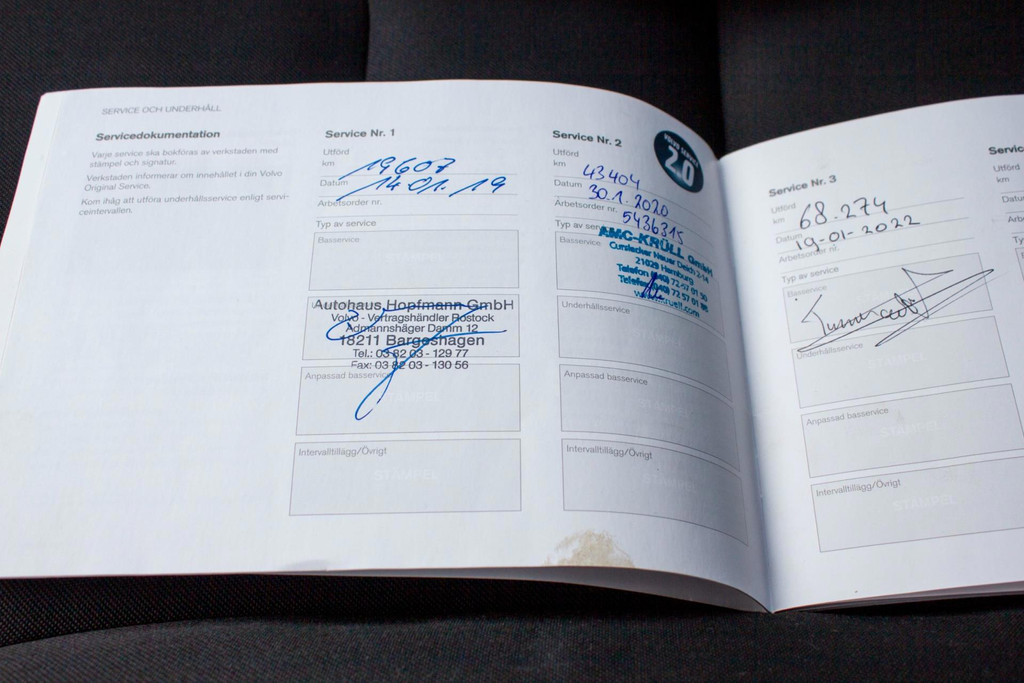 SERVICE OCH UNDERHÅLL
Servicedokumentation
Varje service ska bokföras av verkstaden med
stämpel och signatur.
Verkstaden informerar om innehållet i din Volvo
Original Service.
Kom ihåg att utföra underhållsservice enligt serv-
iceintervallen.
Service Nr. 1
Utförd
km 19607
Datum 14.01.19
Arbetsorder nr.
Typ av service
Basservice
Autohaus Hopfmann GmbH
Volvo - Vertragshändler Rostock
Admannshäger Damm 12
18211 Bargeshagen
Tel.: 03 82 03 - 129 77
Fax: 03 82 03 - 130 56
Anpassad basservice
STÄMPEL
Intervalltillägg/Övrigt
STÄMPEL
Service Nr. 2
VOLVO SERVICE
2.0
Utförd
km 43404
Datum 30.1.2020
Arbetsorder nr. 5436315
Typ av service
Basservice
AMC-KRÜLL GmbH
Curslacker Neuer Deich 2-14
21029 Hamburg
Telefon (040) 72 57 01 50
Underhållsservice
Anpassad basservice
Intervalltillägg/Övrigt
STÄMPEL
Service Nr. 3
Utförd
km 68.274
Datum 19-01-2022
Arbetsorder nr.
Typ av service
Basservice
Underhållsservice
Anpassad basservice
STÄMPEL
Intervalltillägg/Övrigt
STÄMPEL
Servic
Utförd
km
Datu
Arbe
Typ